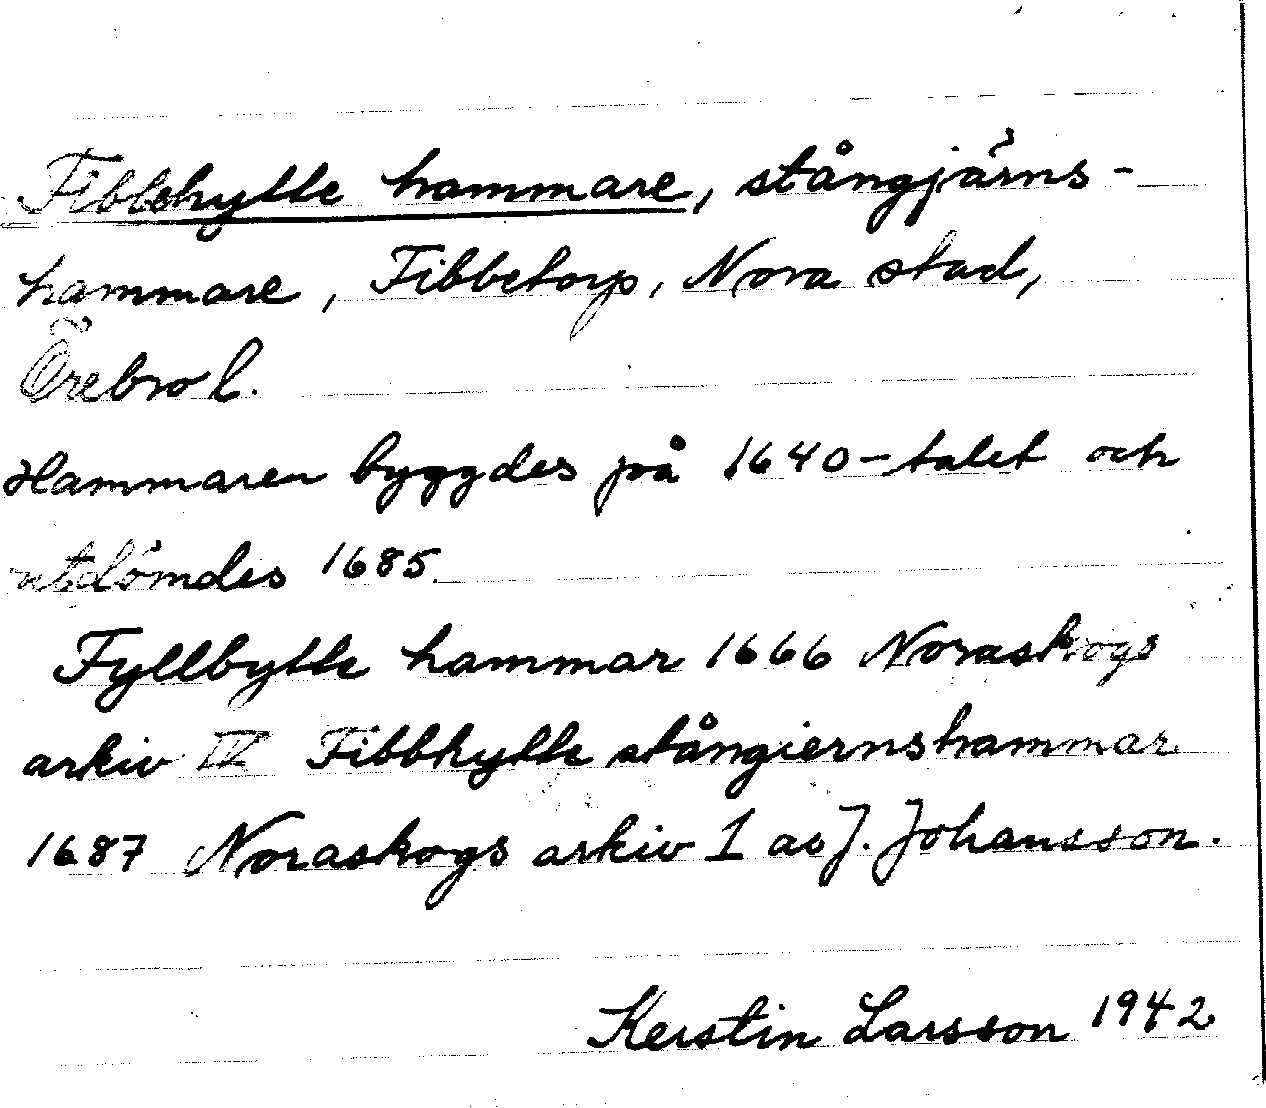 Fibbehytte hammare, stångjärns-
hammare, Fibbetorp, Nora stad,
Örebro l.
Hammaren byggdes på 1640-talet och
utdömdes 1685.
Fyllbytte hammar 1666 Noraskogs
arkiv IV Fibbhytte stångiernshammar
1687 Noraskogs arkiv I av J. Johansson.
Kerstin Larsson 1942